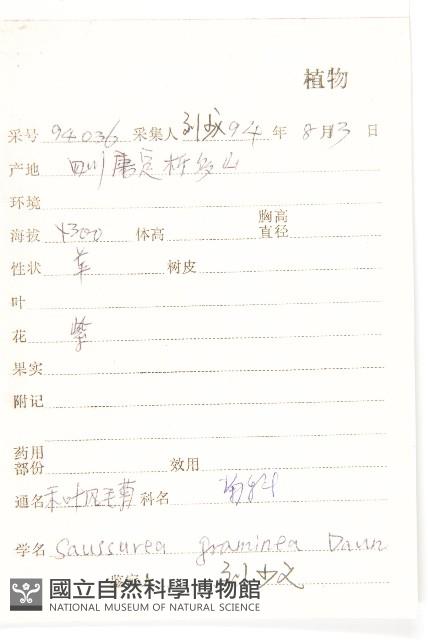 植物
采号 94036 采集人 刘成 94 年 8 月 3 日
产地 四川康定折多山
环境
海拔 4300 体高 胸高直径
性状 草 树皮
叶
花 紫
果实
附记
药用部份 效用
通名 禾叶风毛菊 科名 菊科
学名 Saussurea graminea Dunn
國立自然科學博物館
NATIONAL MUSEUM OF NATURAL SCIENCE